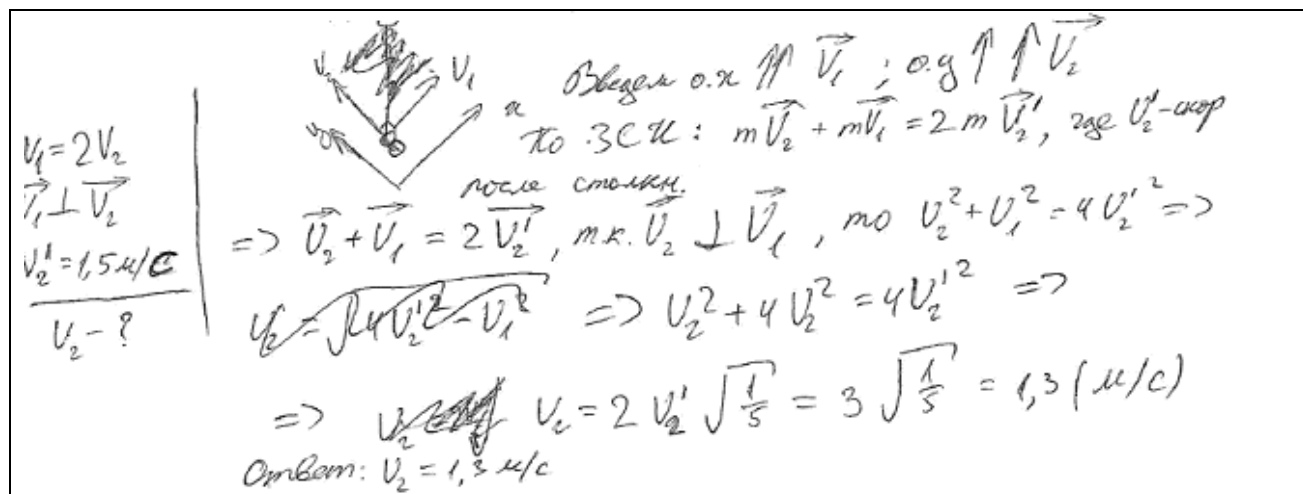 V₁ = 2V₂
V₁ ⊥ V₂
V₂' = 1,5 м/с
V₂ - ?
V₁
x
Введем о.x ⇈ V₁ ; о.y ↑↑ V₂
По ЗСИ: mV₂ + mV₁ = 2mV₂', где V₂' - скор
после столкн.
=> V₂ + V₁ = 2V₂', т.к. V₂ ⊥ V₁, то V₂² + V₁² = 4V₂'² =>
V₂ = √4V₂'² - V₁² => V₂² + 4V₂² = 4V₂'² =>
=> V₂ = 2V₂' √1/5 = 3 √1/5 = 1,3 (м/с)
Ответ: V₂ = 1,3 м/с